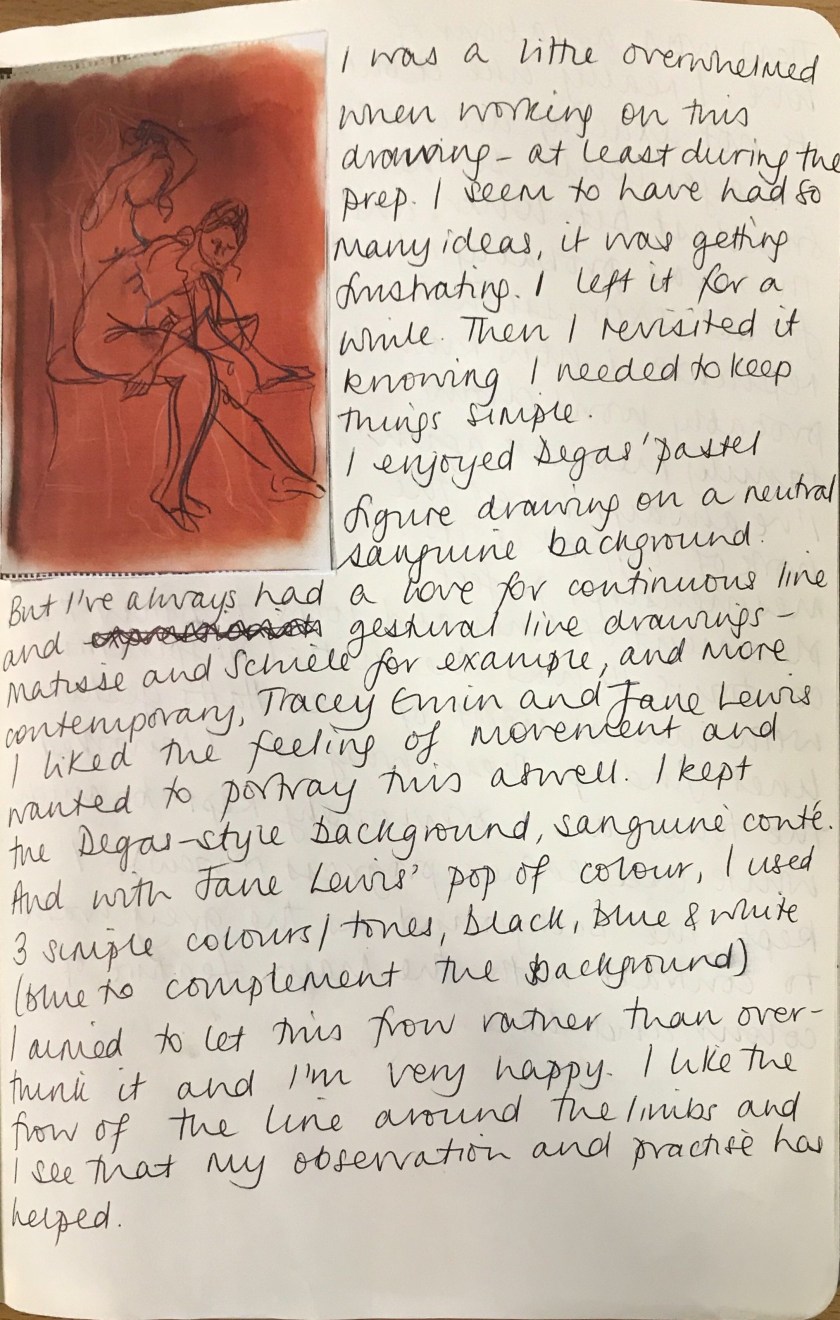 I was a little overwhelmed
when working on this
drawing - at least during the
prep. I seem to have had so
many ideas, it was getting
frustrating. I left it for a
while. Then I revisited it
knowing I needed to keep
things simple.
I enjoyed Degas' pastel
figure drawing on a neutral
sanguine background.
But I've always had a love for continuous line
and gestural line drawings -
Matisse and Schiele for example, and more
contemporary, Tracey Emin and Jane Lewis
I liked the feeling of movement and
wanted to portray this aswell. I kept
the Degas-style background, sanguine conté.
And with Jane Lewis' pop of colour, I used
3 simple colours/tones, black, blue & white
(blue to complement the background)
I aimed to let this flow rather than over-
think it and I'm very happy. I like the
flow of the line around the limbs and
I see that my observation and practise has
helped.